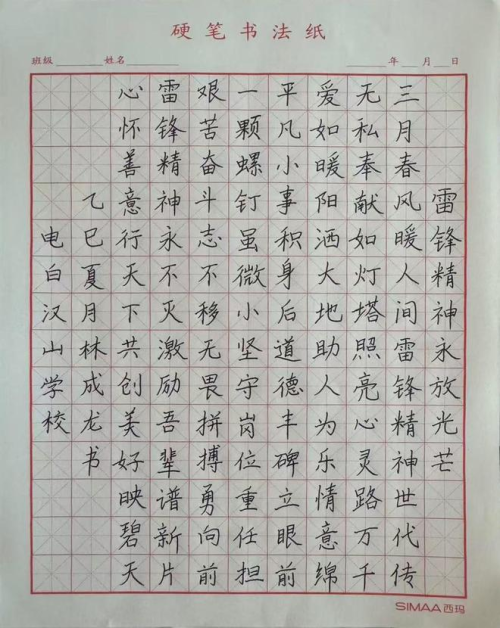 硬笔书法纸
班级 姓名 年 月 日
雷锋精神永放光芒
三月春风暖人间雷锋精神世代传
无私奉献如灯塔照亮心灵路万千
爱如暖阳洒大地助人为乐情意绵
平凡小事积身后道德丰碑立眼前
一颗螺钉虽微小坚守岗位重任担
艰苦奋斗志不移无畏拼搏勇向前
雷锋精神永不灭激励吾辈谱新片
心怀善意行天下共创美好映碧天
乙巳夏月林成龙书
电白汉山学校
SIMAA西玛